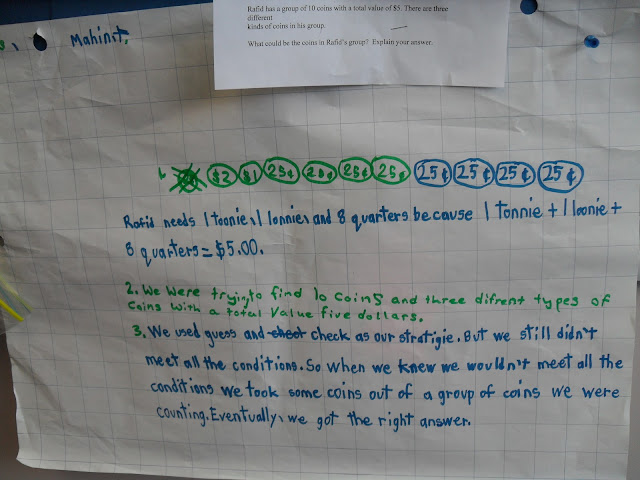 Rafid has a group of 10 coins with a total value of $5. There are three
different
kinds of coins in his group.
What could be the coins in Rafid's group? Explain your answer.
Mahinit,
$2 $1 25¢ 25¢ 25¢ 25¢ 25¢ 25¢ 25¢
Rafid needs 1 toonie, 1 lonnie, and 8 quarters because 1 Tonnie + 1 loonie +
8 quarters = $5.00.
2. We were trying to find 10 coins and three difrent types of
Coins with a total value five dollars.
3. We used guess and check as our stratigie. But we still didn't
meet all the conditions. So when we knew we wouldn't meet all the
conditions we took some coins out of a group of coins we were
counting. Eventually, we got the right answer.